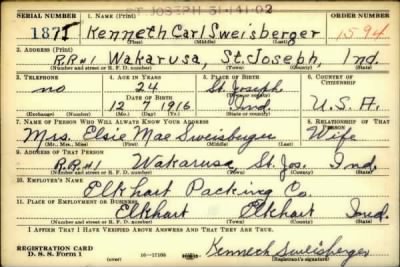 ST. JOSEPH 31-141-02
SERIAL NUMBER 1. NAME (Print) ORDER NUMBER
187 Kenneth Carl Sweisberger 1594
(First) (Middle) (Last)
2. ADDRESS (Print)
RR#1 Wakarusa, St. Joseph, Ind.
(Number and street or R. F. D. number) (Town) (County) (State)
3. TELEPHONE 4. AGE IN YEARS 5. PLACE OF BIRTH 6. COUNTRY OF CITIZENSHIP
no 24 St. Joseph
DATE OF BIRTH (Town or county)
12 7 1916 Ind. U.S.A.
(Mo.) (Day) (Yr.) (State or country)
7. NAME OF PERSON WHO WILL ALWAYS KNOW YOUR ADDRESS 8. RELATIONSHIP OF THAT PERSON
Mrs. Elsie Mae Sweisberger Wife
(Mr., Mrs., Miss) (First) (Middle) (Last)
9. ADDRESS OF THAT PERSON
R.R.#1 Wakarusa St. Jos. Ind.
(Number and street or R. F. D. number) (Town) (County) (State)
10. EMPLOYER'S NAME
Elkhart Packing Co.
11. PLACE OF EMPLOYMENT OR BUSINESS
Elkhart Elkhart Ind.
(Number and street or R. F. D. number) (Town) (County) (State)
I AFFIRM THAT I HAVE VERIFIED ABOVE ANSWERS AND THAT THEY ARE TRUE.
REGISTRATION CARD
D. S. S. Form 1 16-17105 Kenneth Sweisberger
(Registrant's signature)